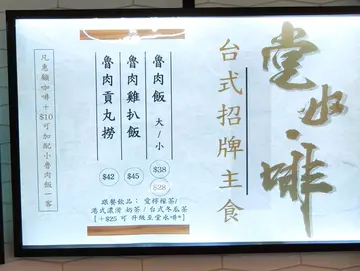 堂水·啡
台式招牌主食
魯肉飯 大/小
$38
$28
魯肉雞扒飯
$45
魯肉貢丸撈
$42
跟餐飲品: 愛檸檬茶/
港式濃滑 奶茶 / 台式冬瓜茶
[+$25 可 升級至堂水啡*]
凡惠顧咖啡+$10可加配小魯肉飯一客